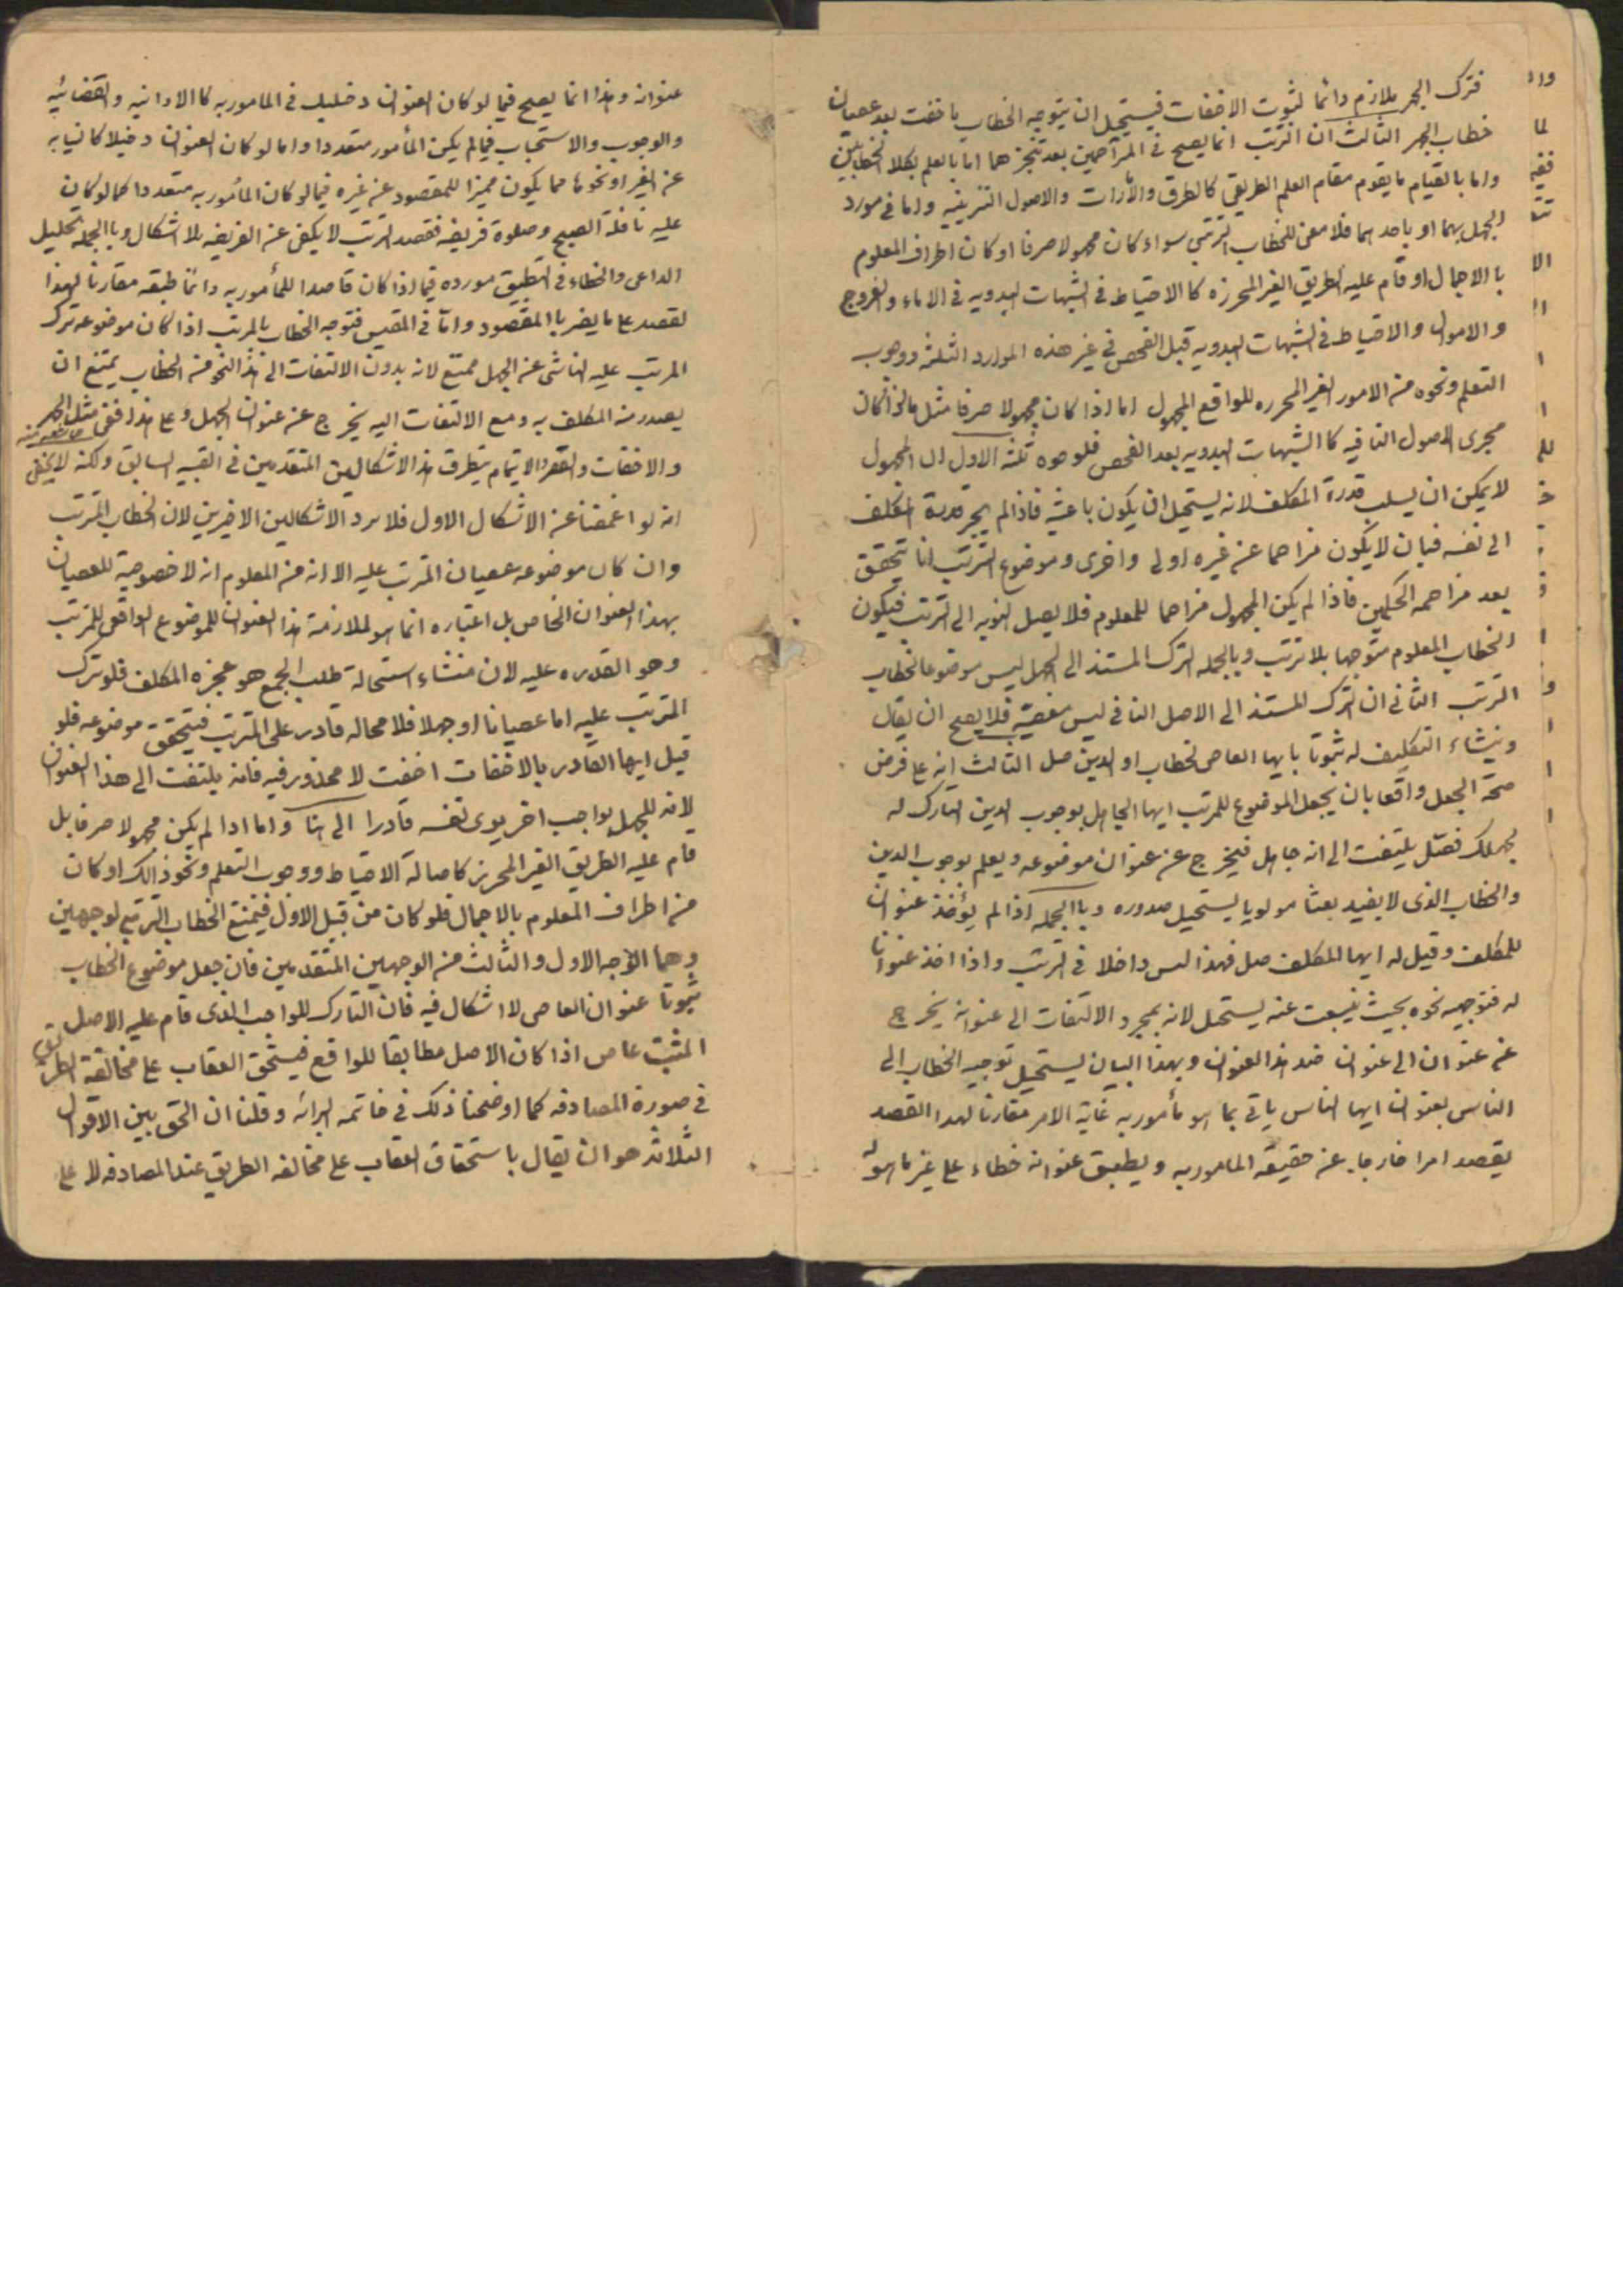 فترك الجهر ملازم دائما لثبوت الاخفات فيستحيل ان يتوجه الخطاب باخفت بعد عصيان
خطاب الجهر الثالث ان الترتب انما يصح في المتزاحمين بعد تنجزهما اما بالعلم بكلا الخطابين
واما بالقيام ما يقوم مقام العلم الطريقي كالطرق والأمارات والاصول التنزيليه واما في مورد
الجهل بهما او باحدهما فلا معنى للخطاب الترتبي سواء كان مجهولا صرفا او كان اطراف المعلوم
بالاجمال او قام عليه الطريق الغير المحرزه كالاحتياط في الشبهات البدويه في الدماء والفروج
والاموال والاحتياط في الشبهات البدويه قبل الفحص في غير هذه الموارد الثلثه ووجوب
التعلم ونحوه من الامور الغير المحرزه للواقع المجهول اما اذا كان مجهولا صرفا مثل ما اذا كان
مجرى الاصول النافيه كالشبهات البدويه بعد الفحص فلوجوه ثلثه الاول ان المجهول
لا يمكن ان يسلب قدرة المكلف لانه يستحيل ان يكون باعثيه فاذا لم يجر قدرة المكلف
الى نفسه فبان لا يكون مزاحما عن غيره اولى واحرى وموضوع الترتب انما يتحقق
بعد مزاحمه الحكمين فاذا لم يكن المجهول مزاحما للمعلوم فلا يصل النوبه الى الترتب فيكون
الخطاب المعلوم متوجها بلا ترتب وبالجمله الترك المستند الى الجهل ليس موضوعا لخطاب
الترتب الثاني ان الترك المستند الى الاصل النافي ليس معصية فلا يصح ان يقال
وينشاء التكليف له ثبوتا بايها العاصى لخطاب اد الدين صل الثالث انه على فرض
صحة الجعل واقعا بان يجعل الموضوع للمرتب ايها الجاهل بوجوب الدين التارك له
لجهلك فصل يلتفت الى انه جاهل فيخرج عن عنوان موضوعه ويعلم بوجوب الدين
والخطاب الذى لا يفيد بعثا مولويا يستحيل صدوره وبالجمله اذا لم يؤخذ عنوان
للمكلف وقيل له ايها المكلف صل فهذا ليس داخلا في الترتب واذا اخذ عنوانا
له فتوجيه نحوه بحيث ينبعث عنه يستحيل لانه بمجرد الالتفات الى عنوانه يخرج
عن عنوان الى عنوان ضد هذا العنوان وبهذا البيان يستحيل توجيه الخطاب الى
الناس بعنوان ايها الناس ياتي بما هو مأمور به غاية الامر مقارنا لهذا القصد
يقصد امرا خارجا عن حقيقة المامور به ويطبق عنوانه خطاء على غير ما هو له
عنوانه وهذا انما يصح فيما لو كان العنوان دخيلا في المامور به كالادائيه والقضائيه
والوجوب والاستحباب فيما لم يكن المأمور متعددا واما لو كان العنوان دخيلا كالنيابه
عن الغير او نحوها مما يكون مميزا للمقصود عن غيره فيما لو كان المأمور به متعددا كما لو كان
عليه نافلة الصبح وصلوة فريضه فقصد الترتب لا يكفى عن الفريضه بلا اشكال وبالجمله تحليل
الداعى والخطاء في التطبيق مورده فيما اذا كان قاصدا للمأمور به دائما طبقه مقارنا لهذا
لقصد على ما يضر بالمقصود واما في المقيس فتوجه الخطاب بالمرتب اذا كان موضوعه ترك
المرتب عليه الناشى عن الجهل ممتنع لانه بدون الالتفات الى هذا النحو من الخطاب يمتنع ان
يصدر من المكلف به ومع الالتفات اليه يخرج عن عنوان الجهل وعلى هذا ففى مثل الجهر
والاخفات والقصر والاتمام يتطرق هذا الاشكالين المتقدمين في القسم السابق ولكنه لا يخفى
انه لو اغمضنا عن الاشكال الاول فلا يرد الاشكالين الاخيرين لان الخطاب المترتب
وان كان موضوعه عصيان المترتب عليه الا انه من المعلوم انه لا خصوصية للعصيان
بهذا العنوان الخاص بل اعتباره انما هو لملازمة هذا العنوان للموضوع الواقعى للمترتب
وهو القدره عليه لان منشاء استحالة طلب الجمع هو عجزه المكلف فلو ترك
المترتب عليه اما عصيانا او جهلا فلا محاله قادر على المترتب فيتحقق موضوعه فلو
قيل ايها القادر بالاخفات اخفت لا محذور فيه فانه يلتفت الى هذا العنوان
لانه للجهل بواجب اخر يرى نفسه قادرا الى هنا واما اذا لم يكن مجهولا صرفا بل
قام عليه الطريق الغير المحرز كاصالة الاحتياط ووجوب التعلم ونحو ذالك او كان
من اطراف المعلوم بالاجمال فلو كان من قبيل الاول فيمتنع الخطاب الترتبي لوجهين
وهما الوجه الاول والثالث من الوجهين المتقدمين فان جعل موضوع الخطاب
ثبوتا عنوان العاصى لا اشكال فيه فان التارك للواجب الذى قام عليه الاصل
المثبت عاص اذا كان الاصل مطابقا للواقع فيستحق العقاب على مخالفة الطريق
في صورة المصادفه كما اوضحنا ذلك في خاتمه البرائه وقلنا ان الحق بين الاقوال
الثلاثه هو ان يقال باستحقاق العقاب على مخالفه الطريق عند المصادفه لا على